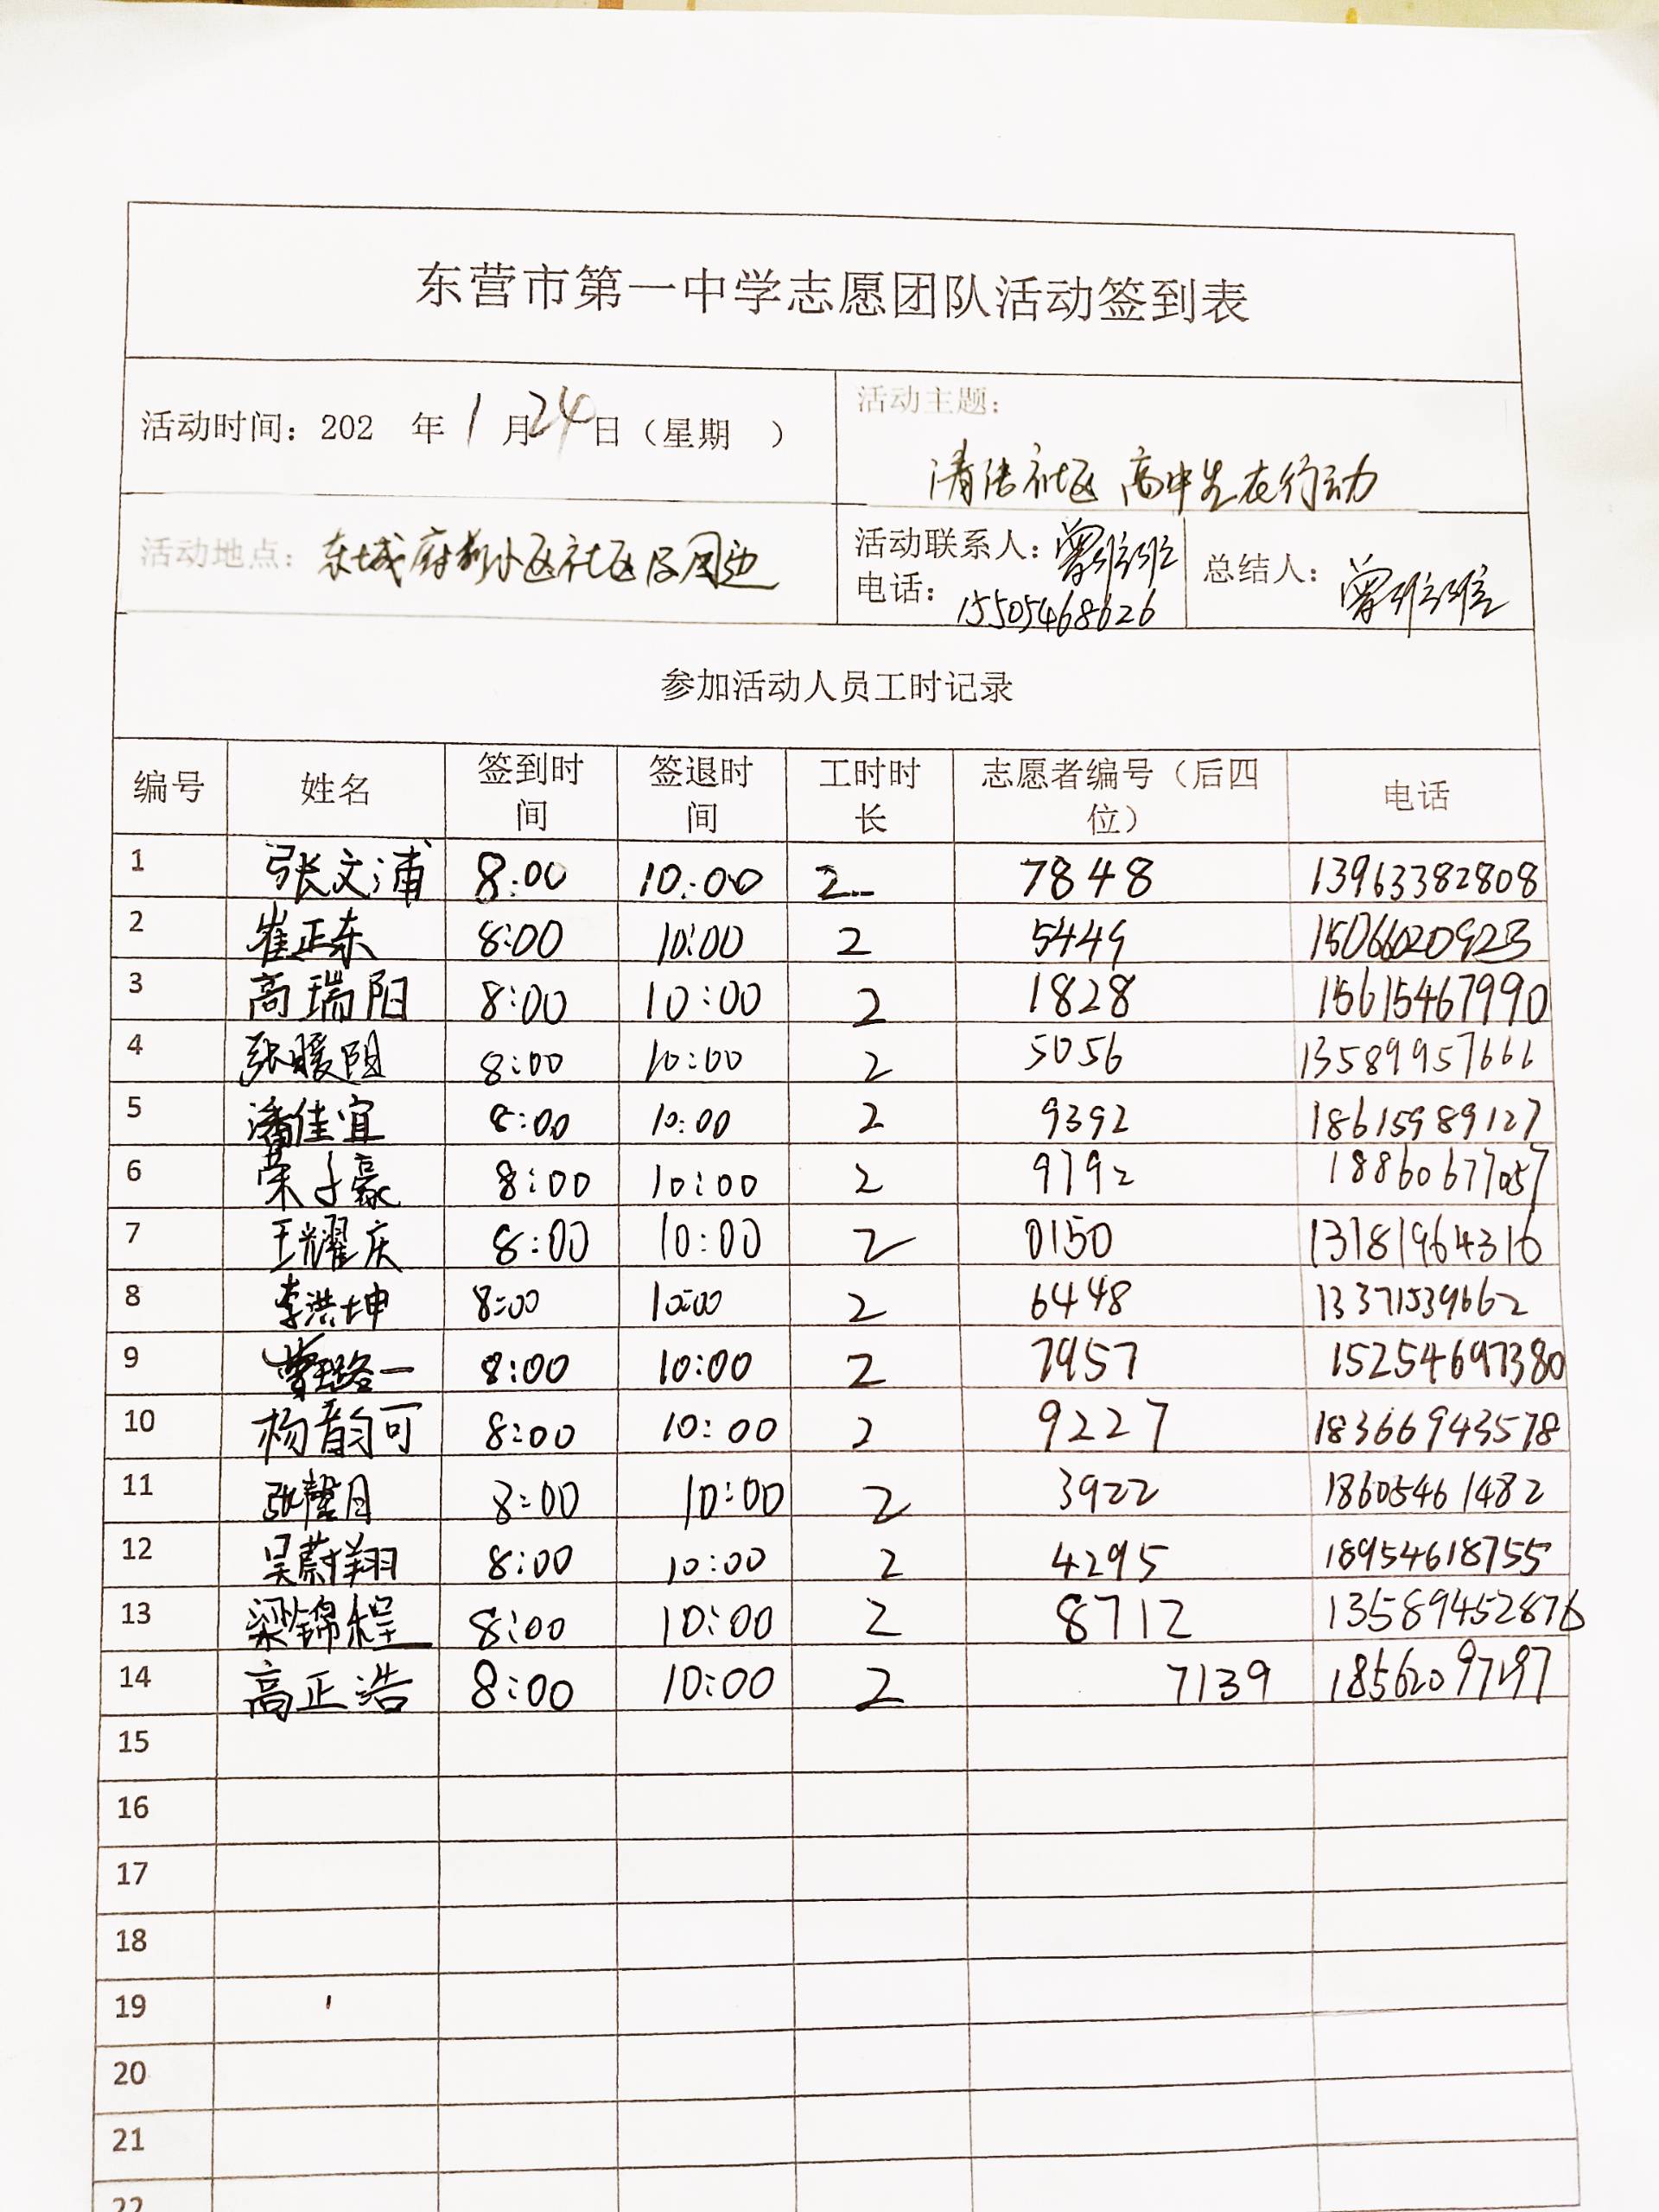 东营市第一中学志愿团队活动签到表
活动时间：202 年 1 月 24 日（星期 ）
活动主题：
清洁社区 高中生在行动
活动地点：东城府前小区社区及周边
活动联系人：曾班班
电话：15505468626
总结人：曾班班
参加活动人员工时记录
编号 姓名 签到时间 签退时间 工时时长 志愿者编号（后四位） 电话
1 张文浦 8:00 10:00 2 7848 13963382808
2 崔正东 8:00 10:00 2 5449 15066020923
3 高瑞阳 8:00 10:00 2 1828 15615467990
4 张暖阳 8:00 10:00 2 5056 13589957666
5 潘佳宜 8:00 10:00 2 9392 18615989127
6 荣子豪 8:00 10:00 2 9792 18860677057
7 王耀庆 8:00 10:00 2 0150 13181964316
8 李洪坤 8:00 10:00 2 6448 13371539662
9 曹璐一 8:00 10:00 2 7957 15254697380
10 杨韵可 8:00 10:00 2 9227 18366943578
11 张馨月 8:00 10:00 2 3922 18605461482
12 吴蔚翔 8:00 10:00 2 4295 18954618755
13 梁锦程 8:00 10:00 2 8712 13589452876
14 高正浩 8:00 10:00 2 7139 18562097197
15
16
17
18
19
20
21
22